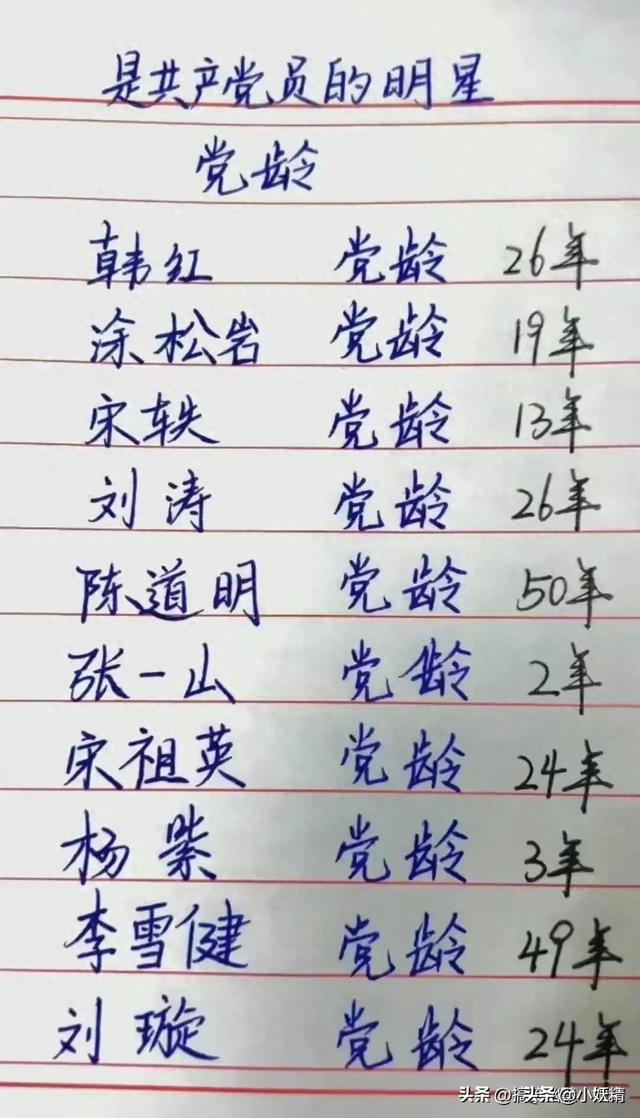 是共产党员的明星
党龄
韩红 党龄 26年
涂松岩 党龄 19年
宋轶 党龄 13年
刘涛 党龄 26年
陈道明 党龄 50年
张一山 党龄 2年
宋祖英 党龄 24年
杨紫 党龄 3年
李雪健 党龄 49年
刘璇 党龄 24年
头条 @搞 头条 @小妖精